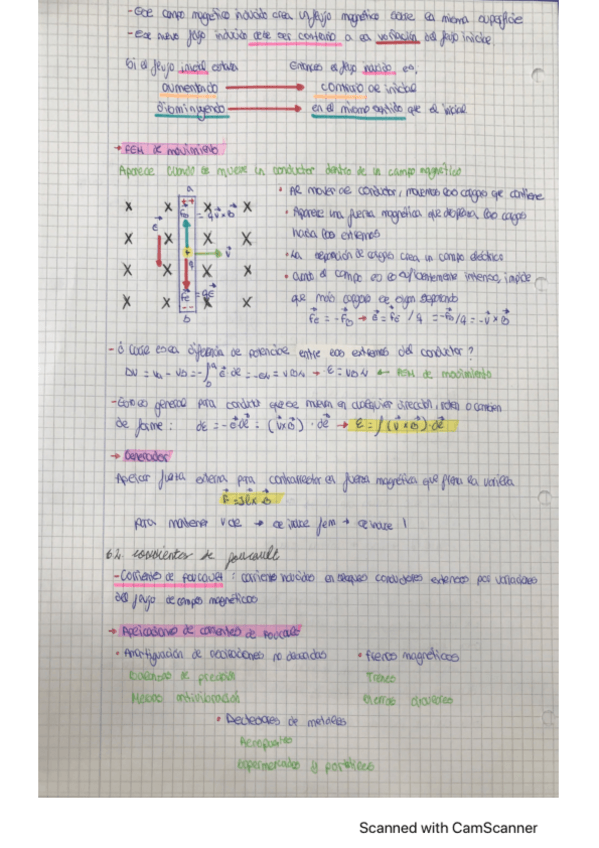 - Ese campo magnético inducido crea un flujo magnético sobre la misma superficie
- Ese nuevo flujo inducido debe ser contrario a la variación del flujo inicial
Si el flujo inicial estaba Entonces el flujo inducido es,
aumentando → contrario al inicial
disminuyendo → en el mismo sentido que el inicial
→ FEM de movimiento
Aparece cuando se mueve un conductor dentro de un campo magnético
a
• Al mover el conductor, movemos las cargas que contiene
• Aparece una fuerza magnética que desplaza las cargas
hacia los extremos
• La separación de cargas crea un campo eléctrico
• cuando el campo es suficientemente intenso, impide
que más cargas se sigan separando
b
- ¿ cuál es la diferencia de potencial entre los extremos del conductor ?
← FEM de movimiento
- Caso general para conductor que se mueva en cualquier dirección, roten o cambien
de forma :
→ Generador
Aplicar fuerza externa para contrarrestar la fuerza magnética que frena la varilla
para mantener v cte → se induce fem → se induce I
6.2. corrientes de foucault
- Corrientes de foucault : corrientes inducidas en bloques conductores extensos por variaciones
del flujo de campos magnéticos
→ Aplicaciones de corrientes de Foucault
• Amortiguación de oscilaciones no deseadas • Frenos magnéticos
Balanzas de precisión Trenes
Mesas antivibración
• Detectores de metales
Aeropuertos
Supermercados y portátiles
Scanned with CamScanner